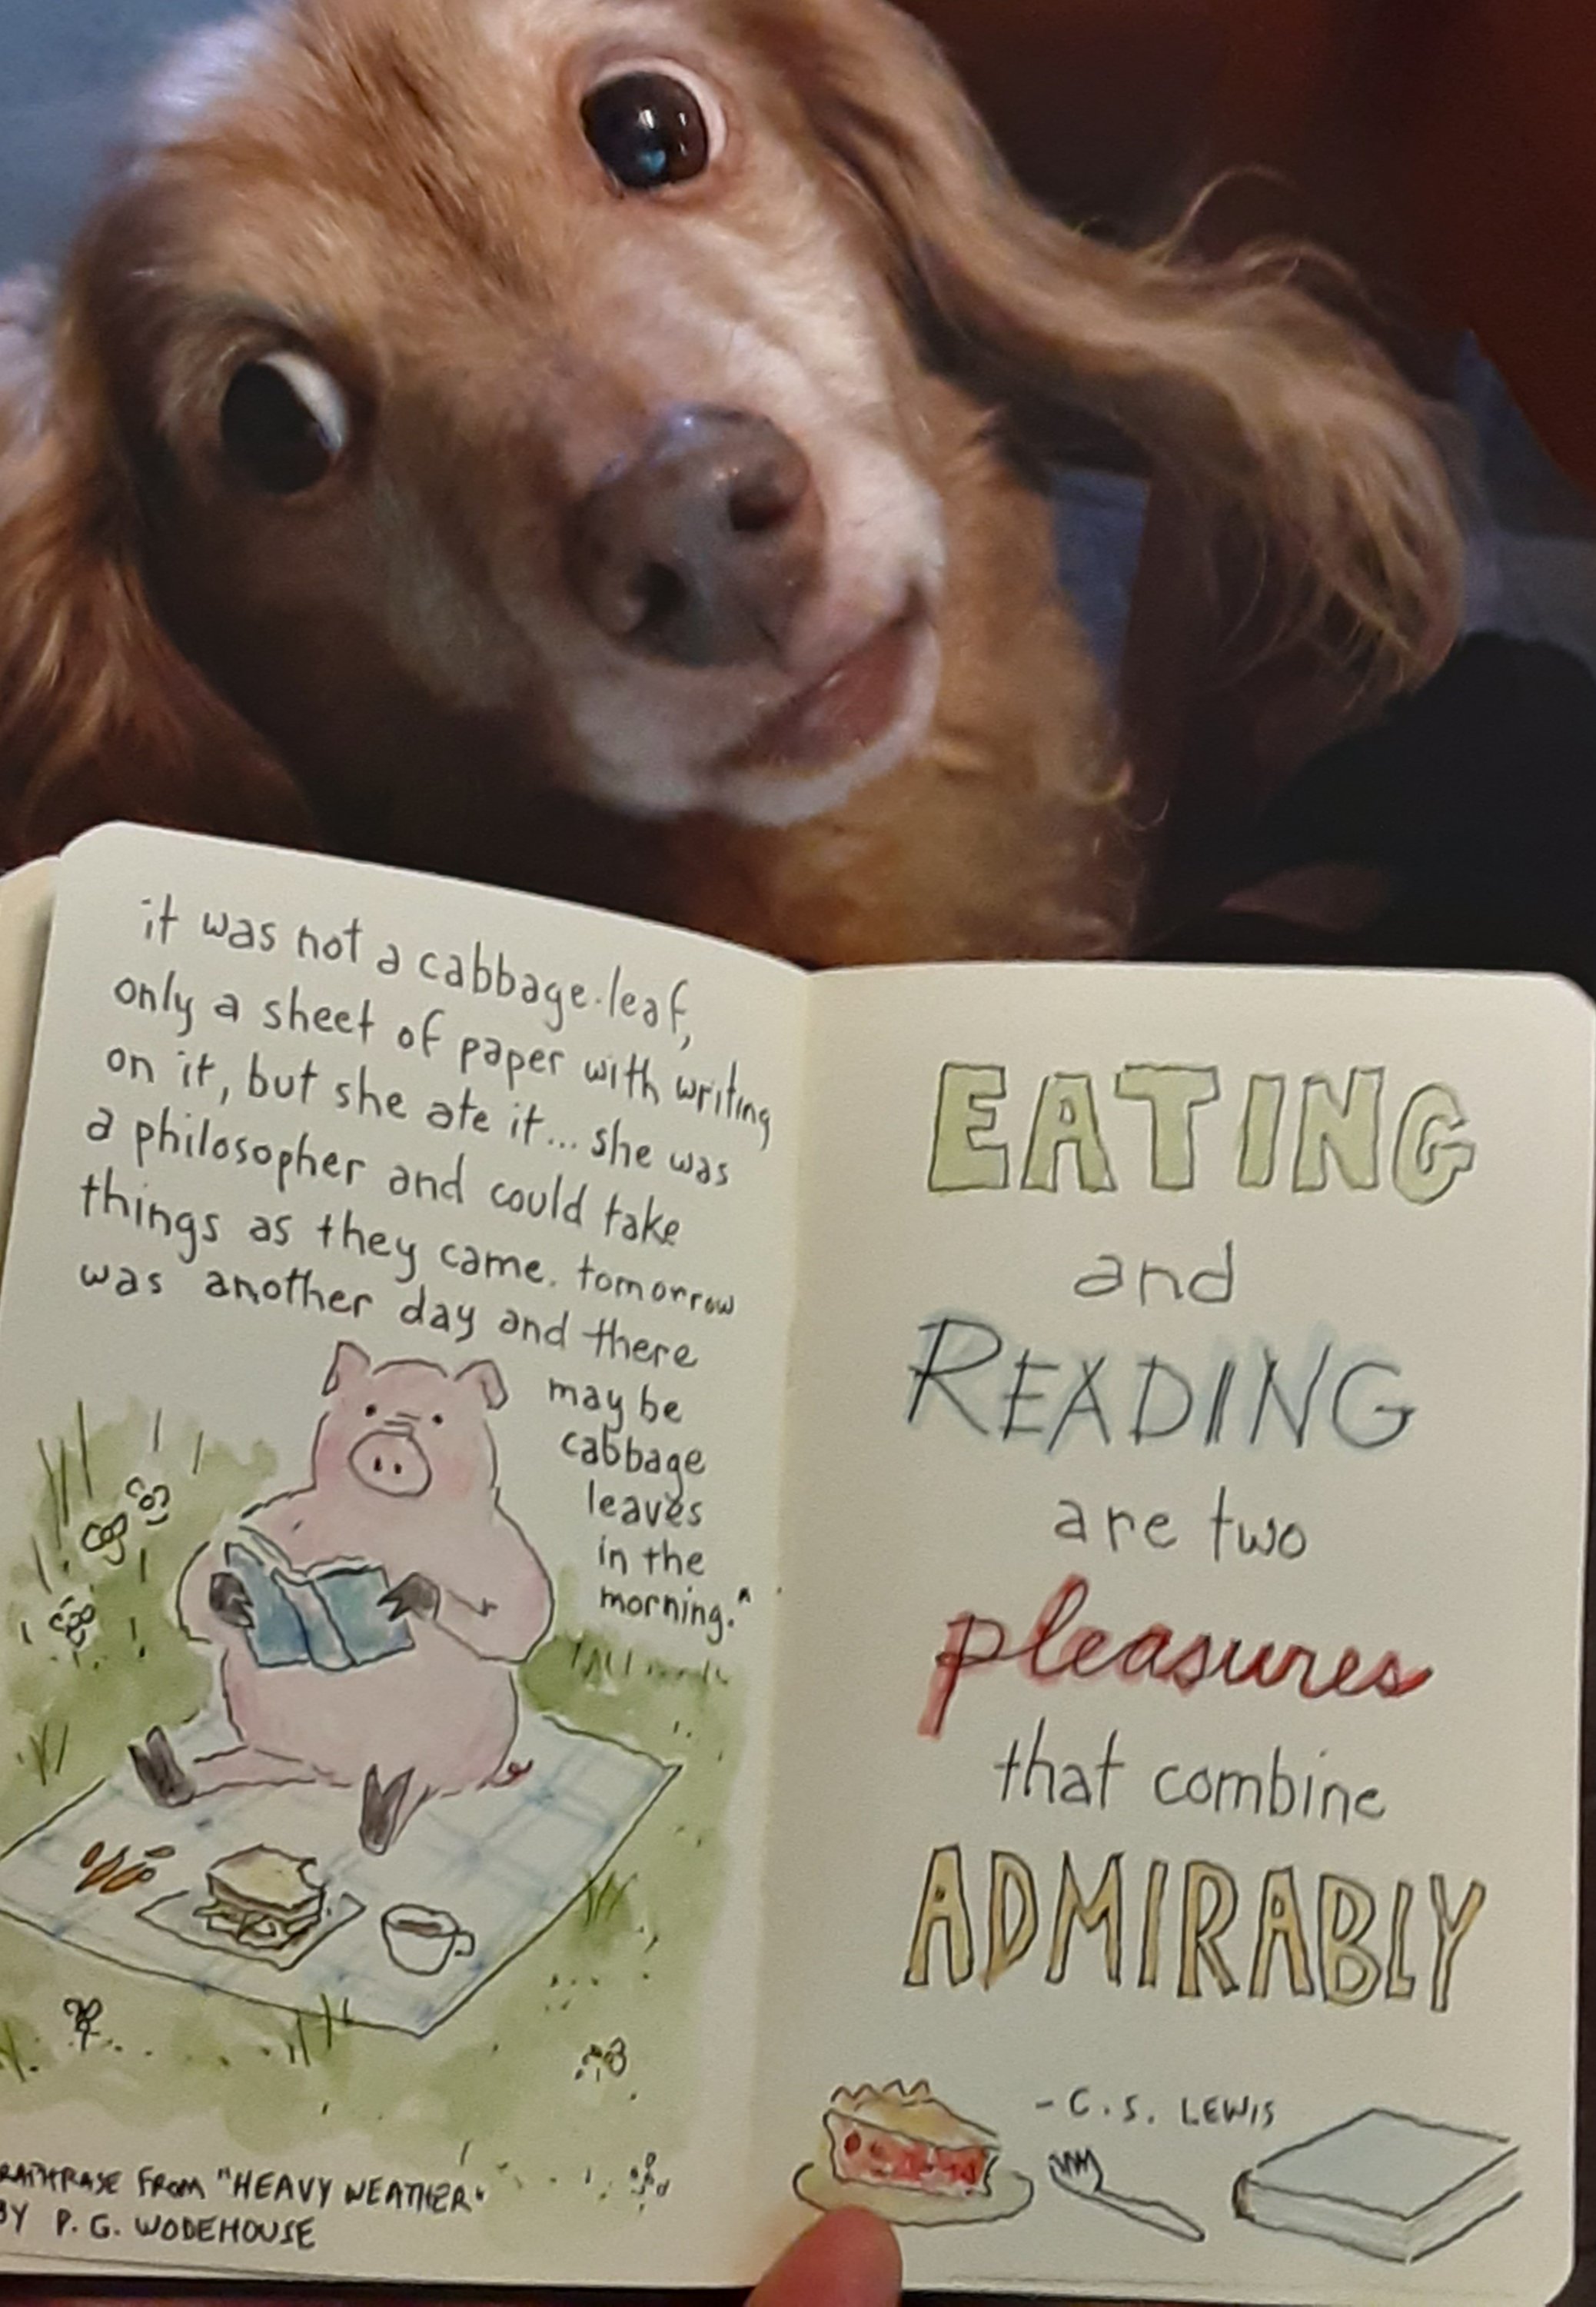 it was not a cabbage-leaf,
only a sheet of paper with writing
on it, but she ate it... she was
a philosopher and could take
things as they came. tomorrow
was another day and there
may be
cabbage
leaves
in the
morning."
FROM "HEAVY WEATHER"
BY P. G. WODEHOUSE
EATING
and
READING
are two
pleasures
that combine
ADMIRABLY
- C. S. LEWIS